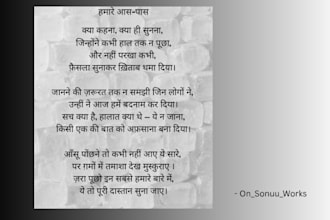 हमारे आस-पास
क्या कहना, क्या ही सुनना,
जिन्होंने कभी हाल तक न पूछा,
और नहीं परखा कभी,
फ़ैसला सुनाकर ख़िताब थमा दिया।
जानने की ज़रूरत तक न समझी जिन लोगों ने,
उन्हीं ने आज हमें बदनाम कर दिया।
सच क्या है, हालात क्या थे – ये न जाना,
किसी एक की बात को अफ़साना बना दिया।
आँसू पोंछने तो कभी नहीं आए ये सारे,
पर ग़मों में तमाशा देख मुस्कुराए ।
ज़रा पूछो इन सबसे हमारे बारे में,
ये तो पूरी दास्तान सुना जाए।
- On_Sonuu_Works